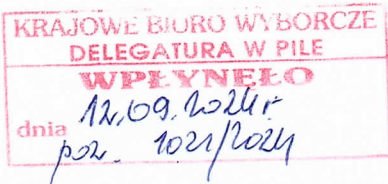 KRAJOWE BIURO WYBORCZE
DELEGATURA W PILE
WPŁYNĘŁO
dnia 12.09.2024r
poz. 1021/2024